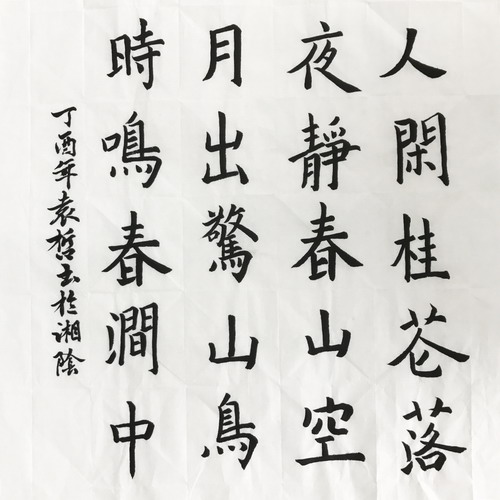 人閑桂花落
夜靜春山空
月出驚山鳥
時鳴春澗中
丁酉年袁哲书於湘陰